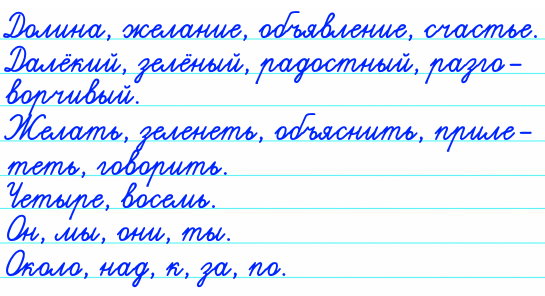 Долина, желание, объявление, счастье.
Далёкий, зелёный, радостный, разго-
ворчивый.
Желать, зеленеть, объяснить, приле-
теть, говорить.
Четыре, восемь.
Он, мы, они, ты.
Около, над, к, за, по.